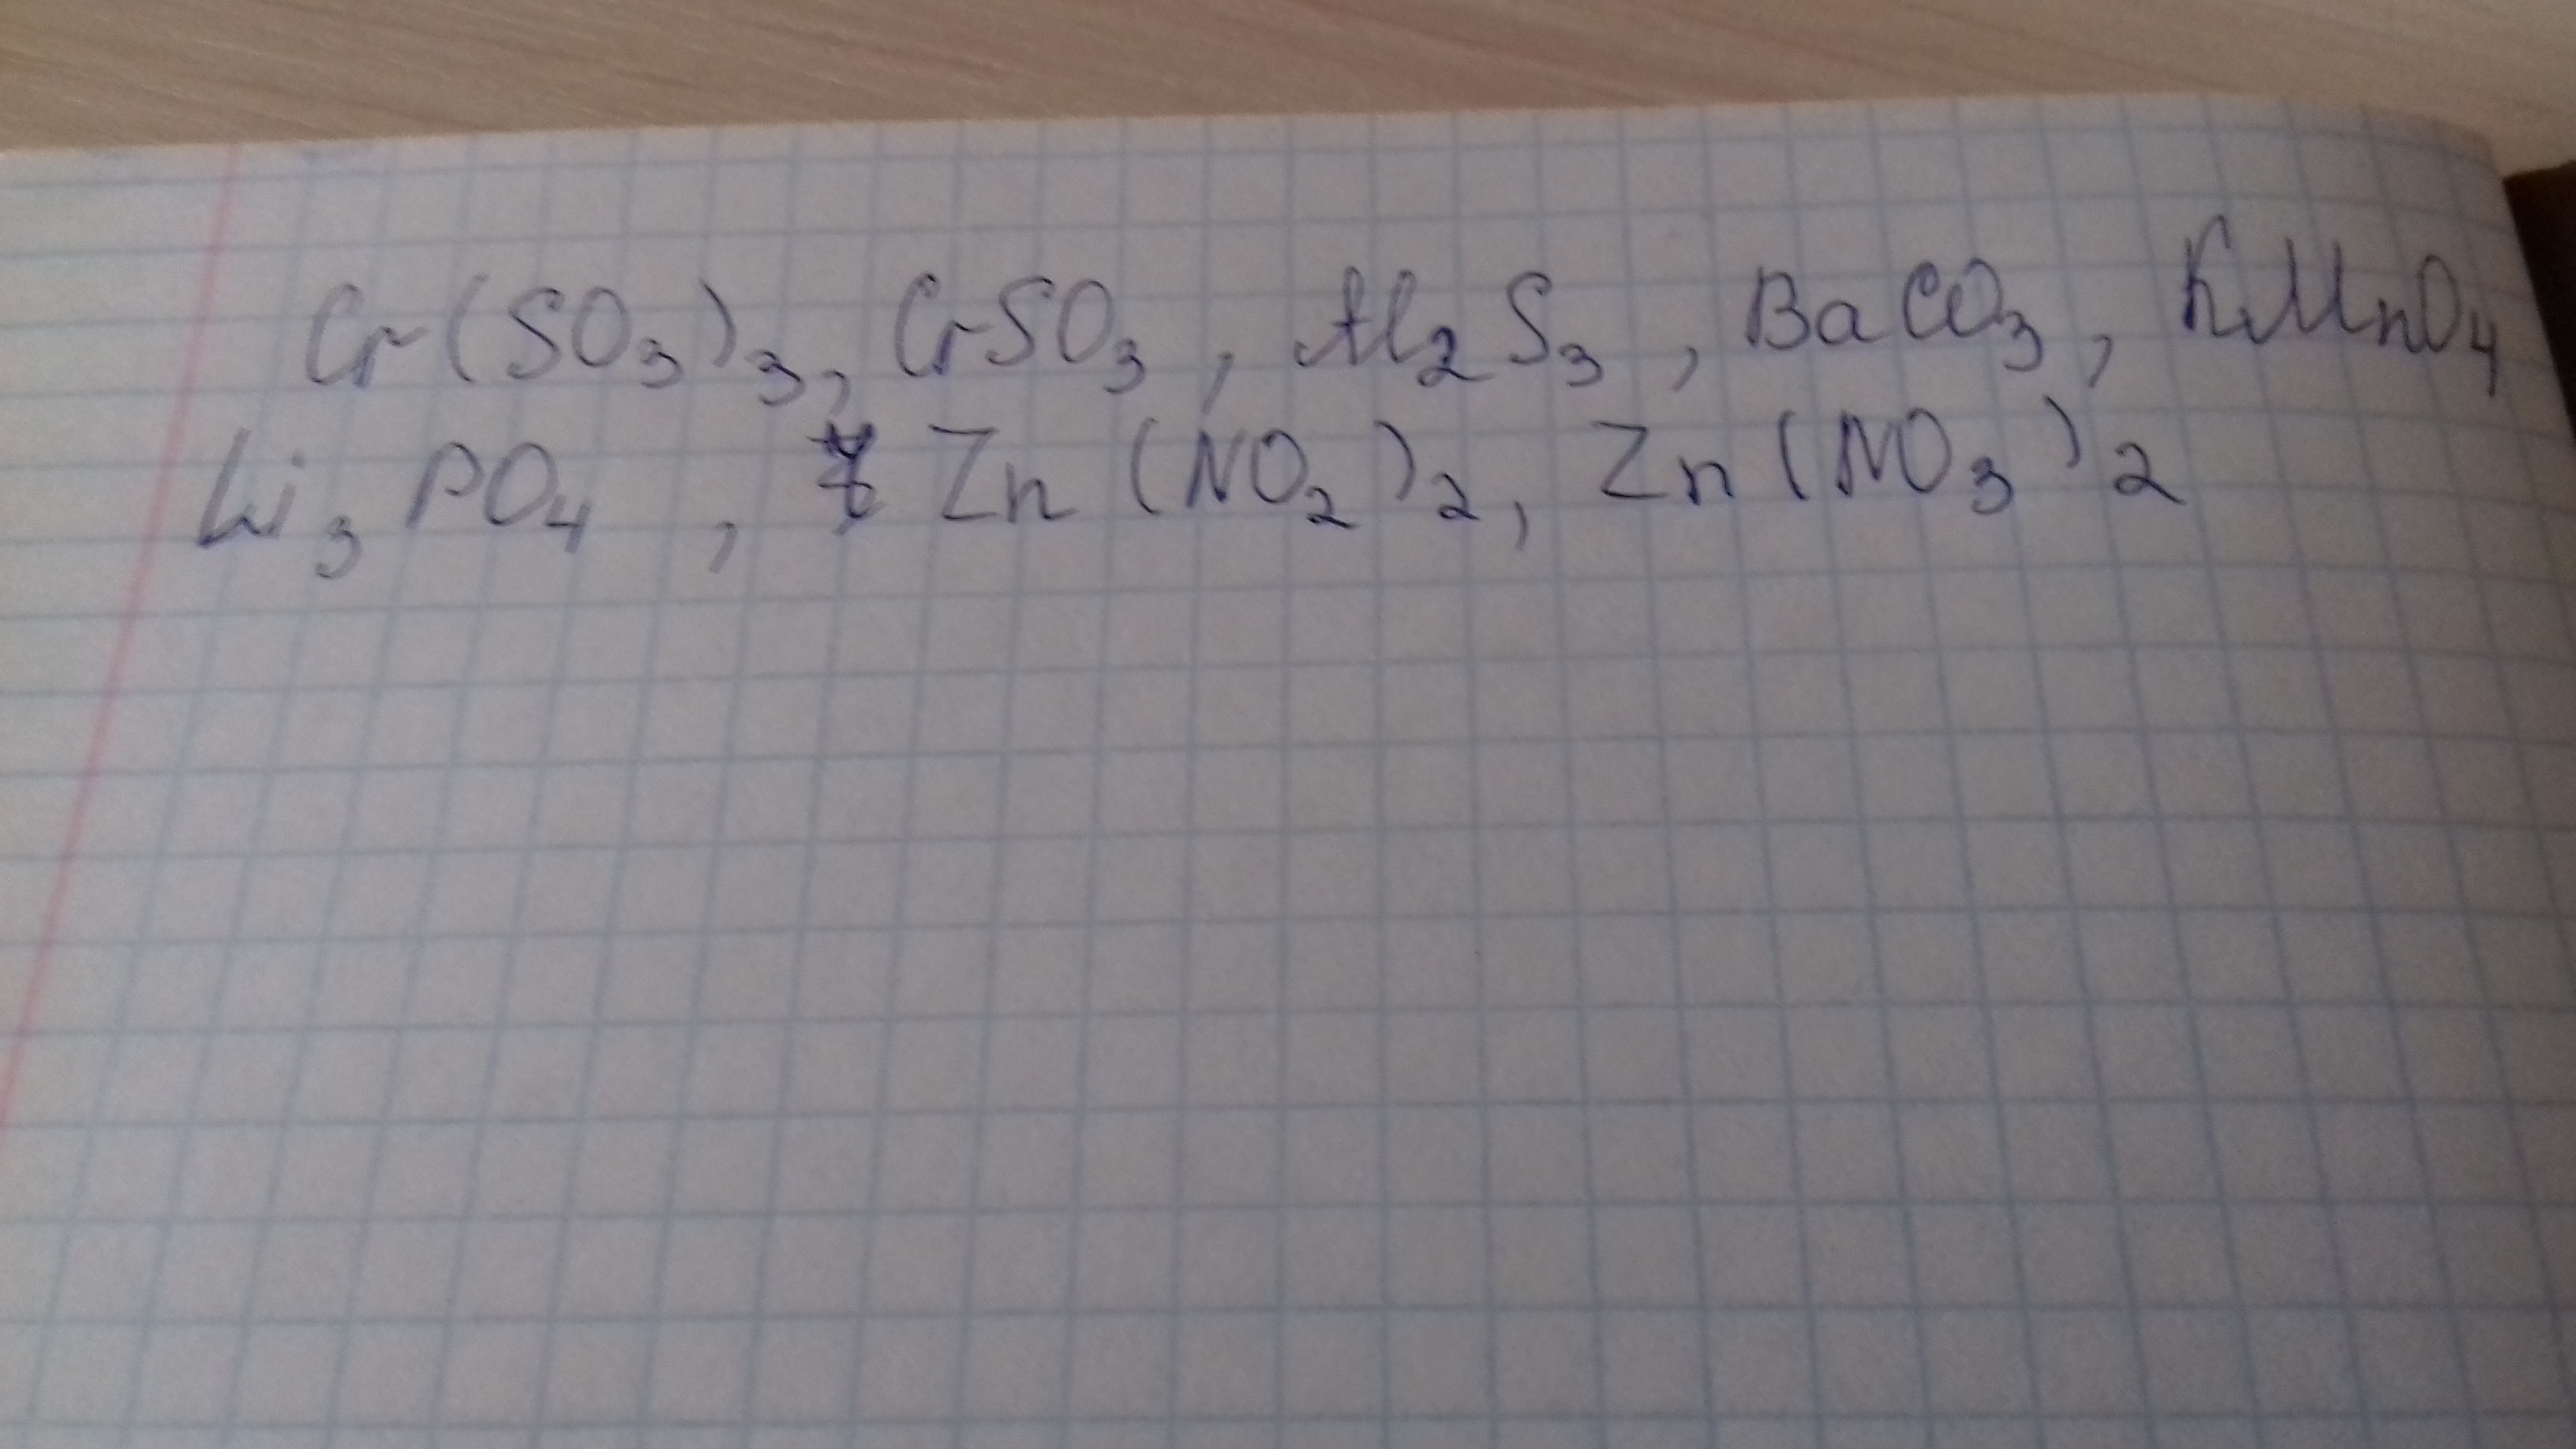 Cr(SO₃)₃, CrSO₃, Al₂S₃, BaCO₃, KMnO₄
Li₃PO₄, Zn(NO₂)₂, Zn(NO₃)₂